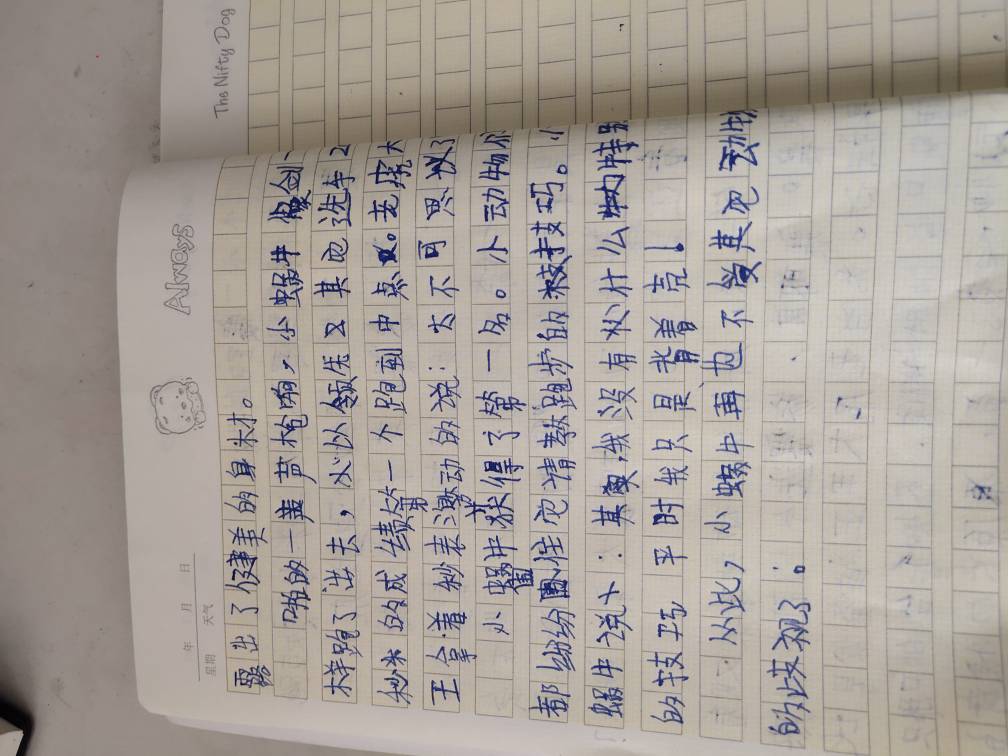 The Nifty Dog
Always
年 月 日
星期 天气
露出了健美的身材。
啪的一声枪响,小蜗牛像剑一
样跑了出去,以领先其他选手2
秒的成绩第一个跑到中点。老虎大
王拿着秒表激动的说:太不可思议了
小蜗牛获得了第一名。小动物们
都纷纷围住它请教跑步的技巧。小
蜗牛说:其实我没有什么特别
的技巧 平时我只是背着壳!
从此,小蜗牛再也不受其它动物
的歧视了。